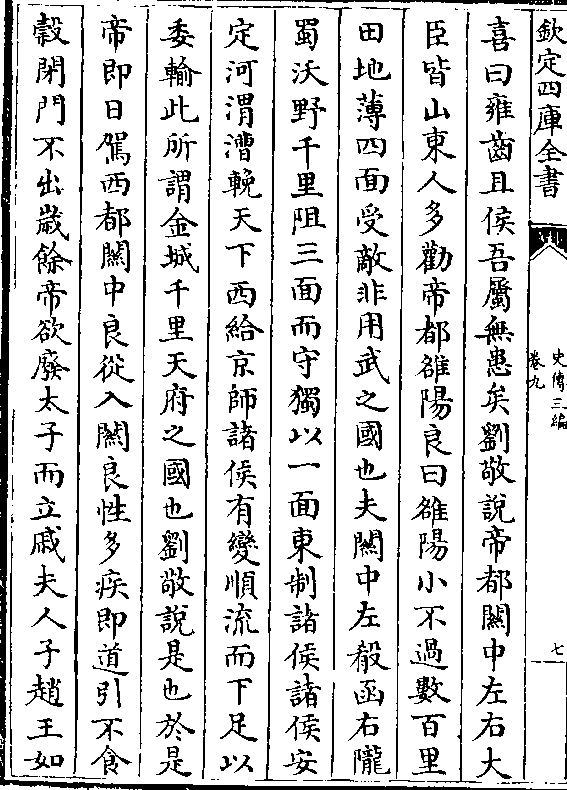 欽定四庫全書
史傳三編
卷九
七
喜曰雍齒且侯吾屬無患矣劉敬說帝都關中左右大
臣皆山東人多勸帝都雒陽良曰雒陽小不過數百里
田地薄四面受敵非用武之國也夫關中左殽函右隴
蜀沃野千里阻三面而守獨以一面東制諸侯諸侯安
定河渭漕輓天下西給京師諸侯有變順流而下足以
委輸此所謂金城千里天府之國也劉敬說是也於是
帝即日駕西都關中良從入關良性多疾即道引不食
穀閉門不出歲餘帝欲廢太子而立戚夫人子趙王如